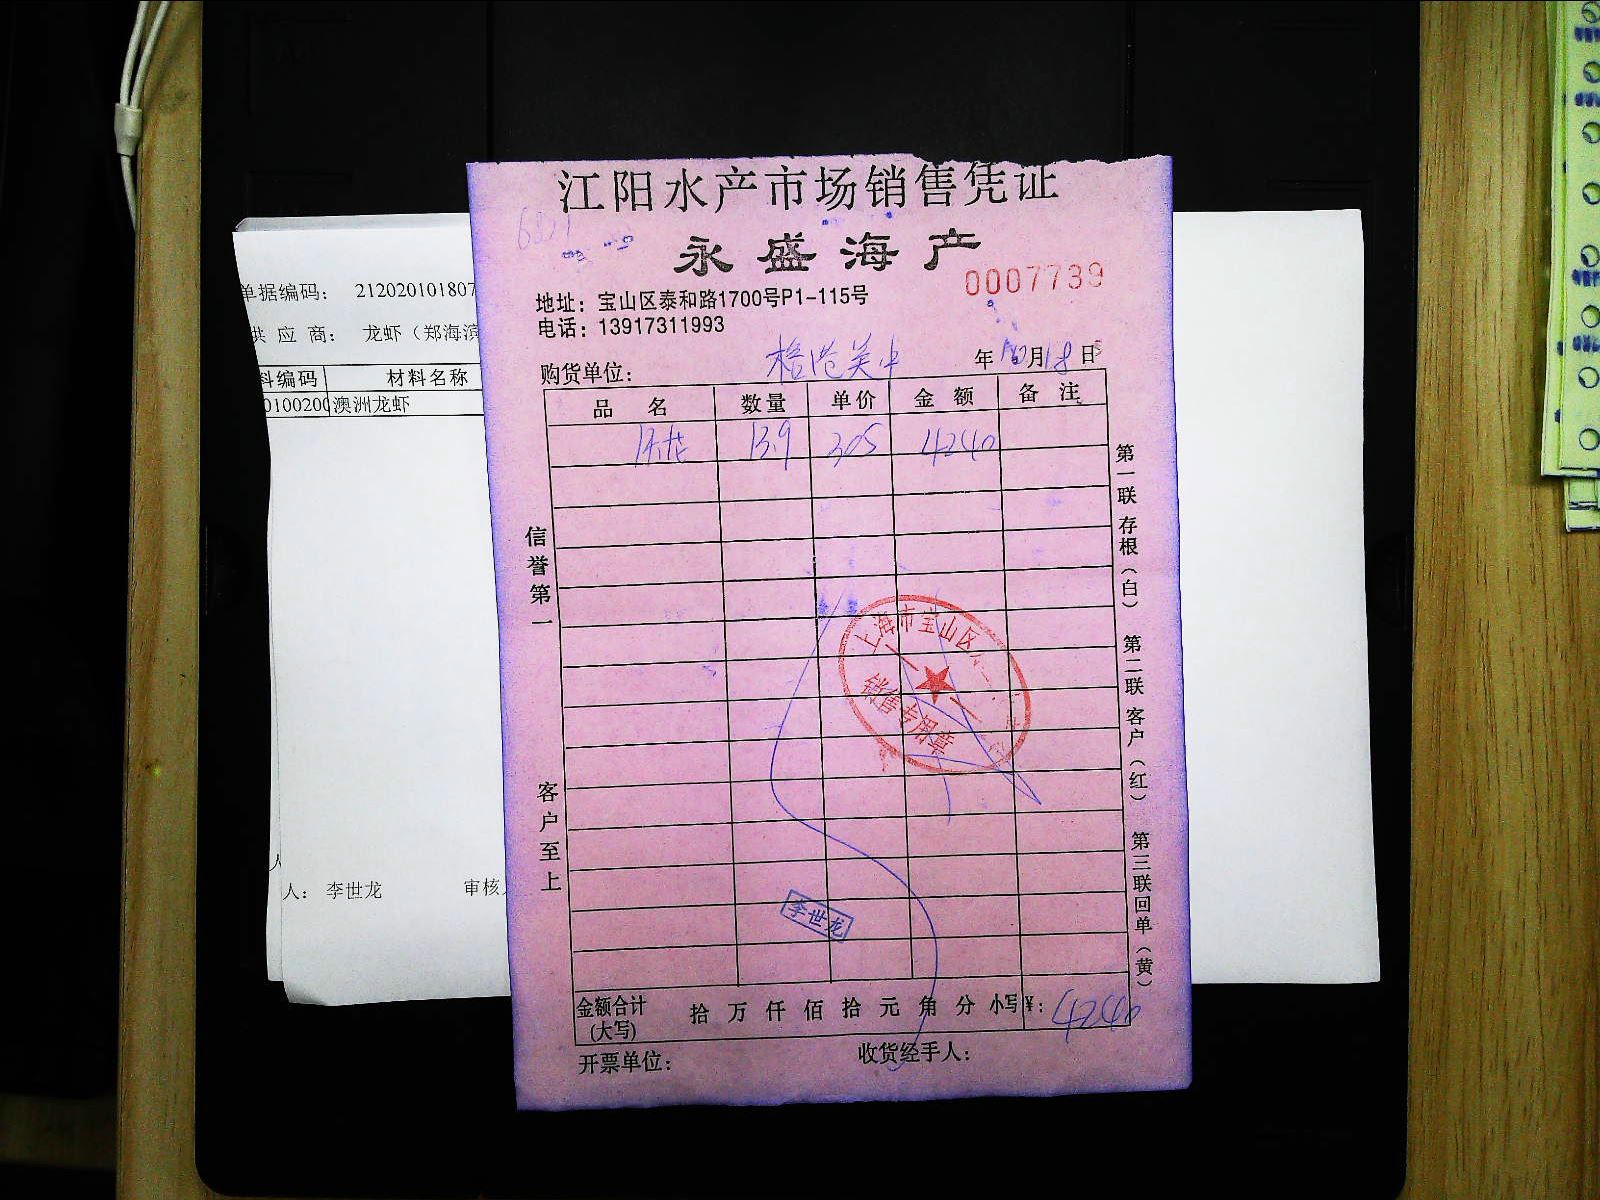 江阳水产市场销售凭证
永盛海产
0007739
地址：宝山区泰和路1700号P1-115号
电话：13917311993
购货单位： 年10月18日
品名 数量 单价 金额 备注
13.9 305 4240
信誉第一
客户至上
第一联 存根（白） 第二联 客户（红） 第三联 回单（黄）
上海市宝山区
销售专用章
李世龙
金额合计（大写） 拾 万 仟 佰 拾 元 角 分 小写¥：4240
开票单位： 收货经手人：
单据编码： 212020101807
供应商： 龙虾（郑海滨
料编码 材料名称
0100200 澳洲龙虾
人： 李世龙 审核